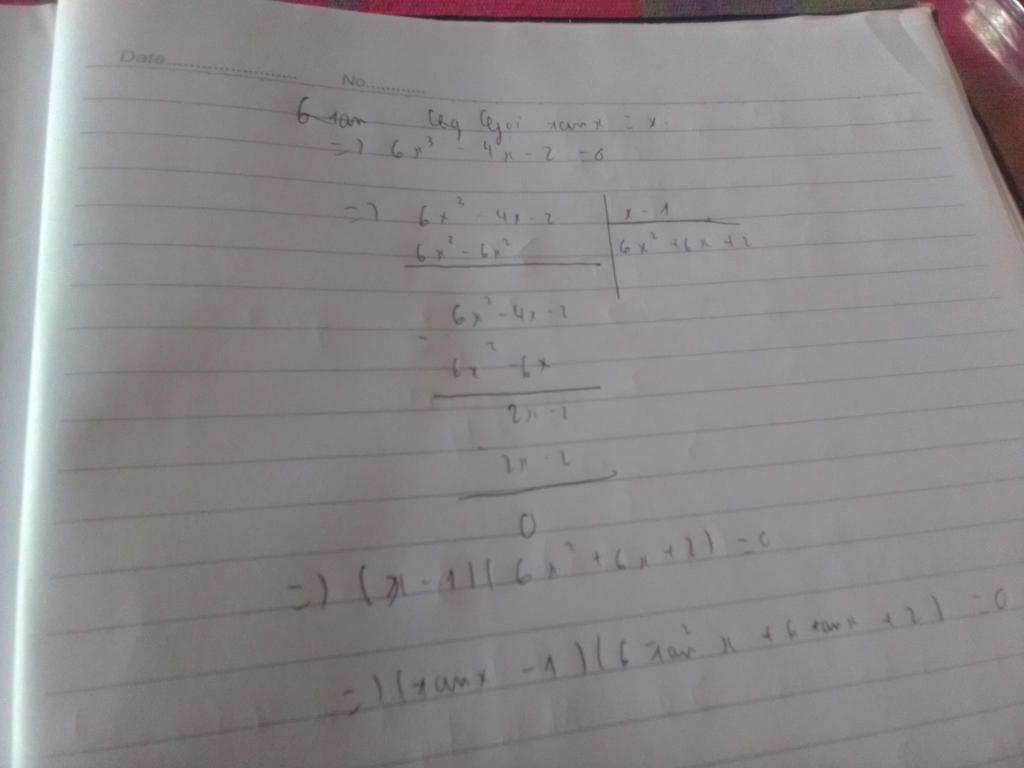 Date
No
6 tan Gọi tanx = x.
=) 6x³ - 4x - 2 = 0
=) 6x³ - 4x - 2 x - 1
6x² - 6x² 6x² + 6x + 2
6x² - 4x - 2
-
6x² - 6x
2x - 2
2x - 2
0
=) (x - 1)(6x² + 6x + 2) = 0
=) (tanx - 1)(6 tan²x + 6 tanx + 2) = 0